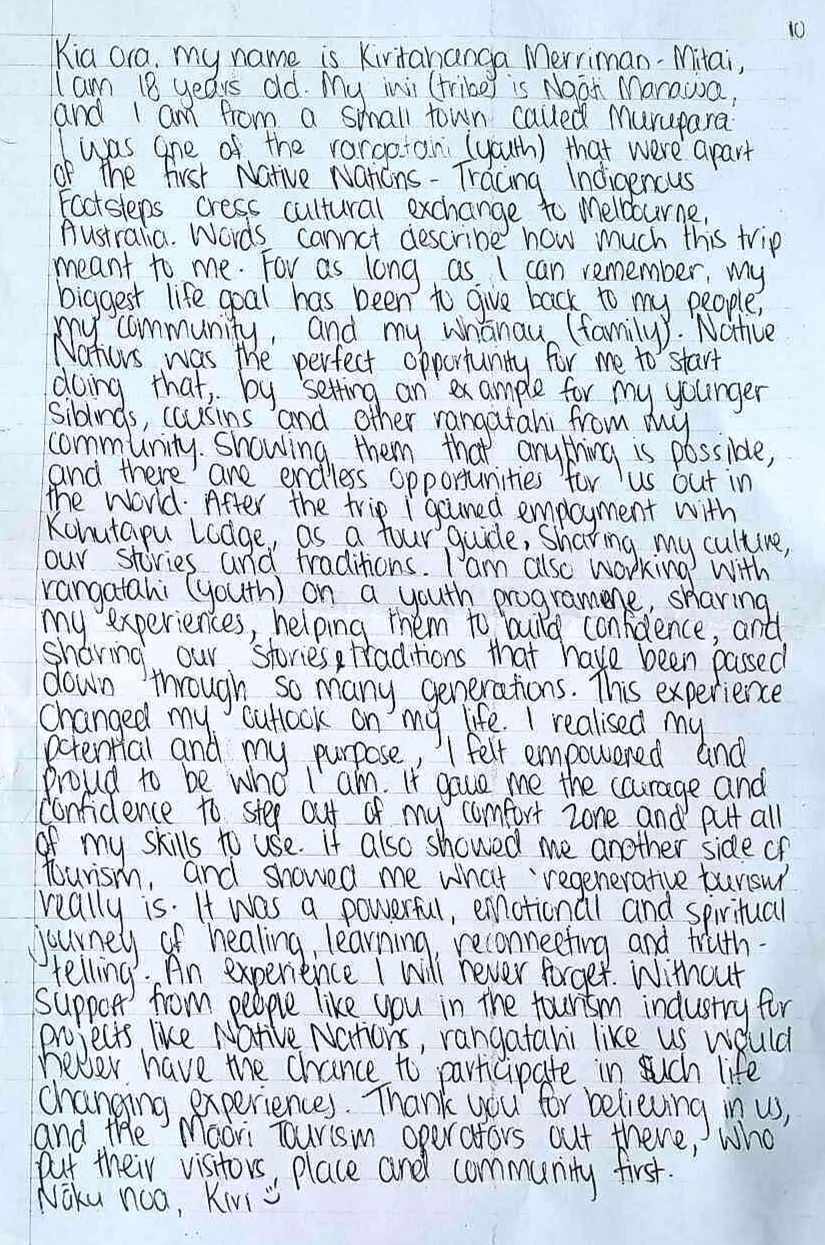 10
Kia ora. My name is Kiritahanga Merriman-Mitai,
I am 18 years old. My iwi (tribe) is Ngāti Manawa,
and I am from a small town called Murupara.
I was one of the rangatahi (youth) that were apart
of the first Native Nations - Tracing Indigenous
Footsteps cross cultural exchange to Melbourne,
Australia. Words cannot describe how much this trip
meant to me. For as long as I can remember, my
biggest life goal has been to give back to my people,
my community, and my whānau (family). Native
Nations was the perfect opportunity for me to start
doing that, by setting an example for my younger
siblings, cousins and other rangatahi from my
community. Showing them that anything is possible,
and there are endless opportunities for us out in
the world. After the trip I gained employment with
Kohutapu Lodge, as a tour guide, sharing my culture,
our stories and traditions. I am also working with
rangatahi (youth) on a youth programme, sharing
my experiences, helping them to build confidence, and
sharing our stories, traditions that have been passed
down through so many generations. This experience
changed my outlook on my life. I realised my
potential and my purpose, I felt empowered and
proud to be who I am. It gave me the courage and
confidence to step out of my comfort zone and put all
of my skills to use. It also showed me another side of
tourism, and showed me what 'regenerative tourism'
really is. It was a powerful, emotional and spiritual
journey of healing, learning, reconnecting and truth-
telling. An experience I will never forget. Without
support from people like you in the tourism industry for
projects like Native Nations, rangatahi like us would
never have the chance to participate in such life
changing experiences. Thank you for believing in us,
and the Māori Tourism operators out there, who
put their visitors, place and community first.
Nāku noa, Kiri